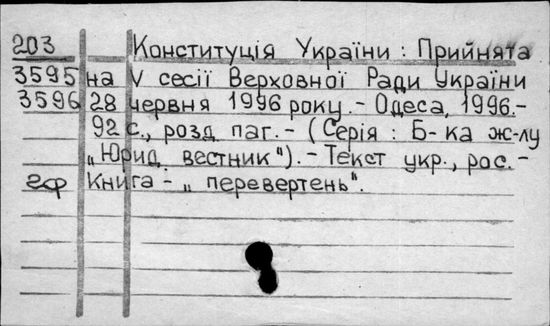 203 Конституція України : Прийнята
3595 на V сесії Верховної Ради України
3596 28 червня 1996 року. - Одеса, 1996. -
92 с., розд. паг. - ( Серія : Б-ка ж-лу
„ Юрид. вестник "). - Текст укр., рос. -
гф Книга - „ перевертень ".